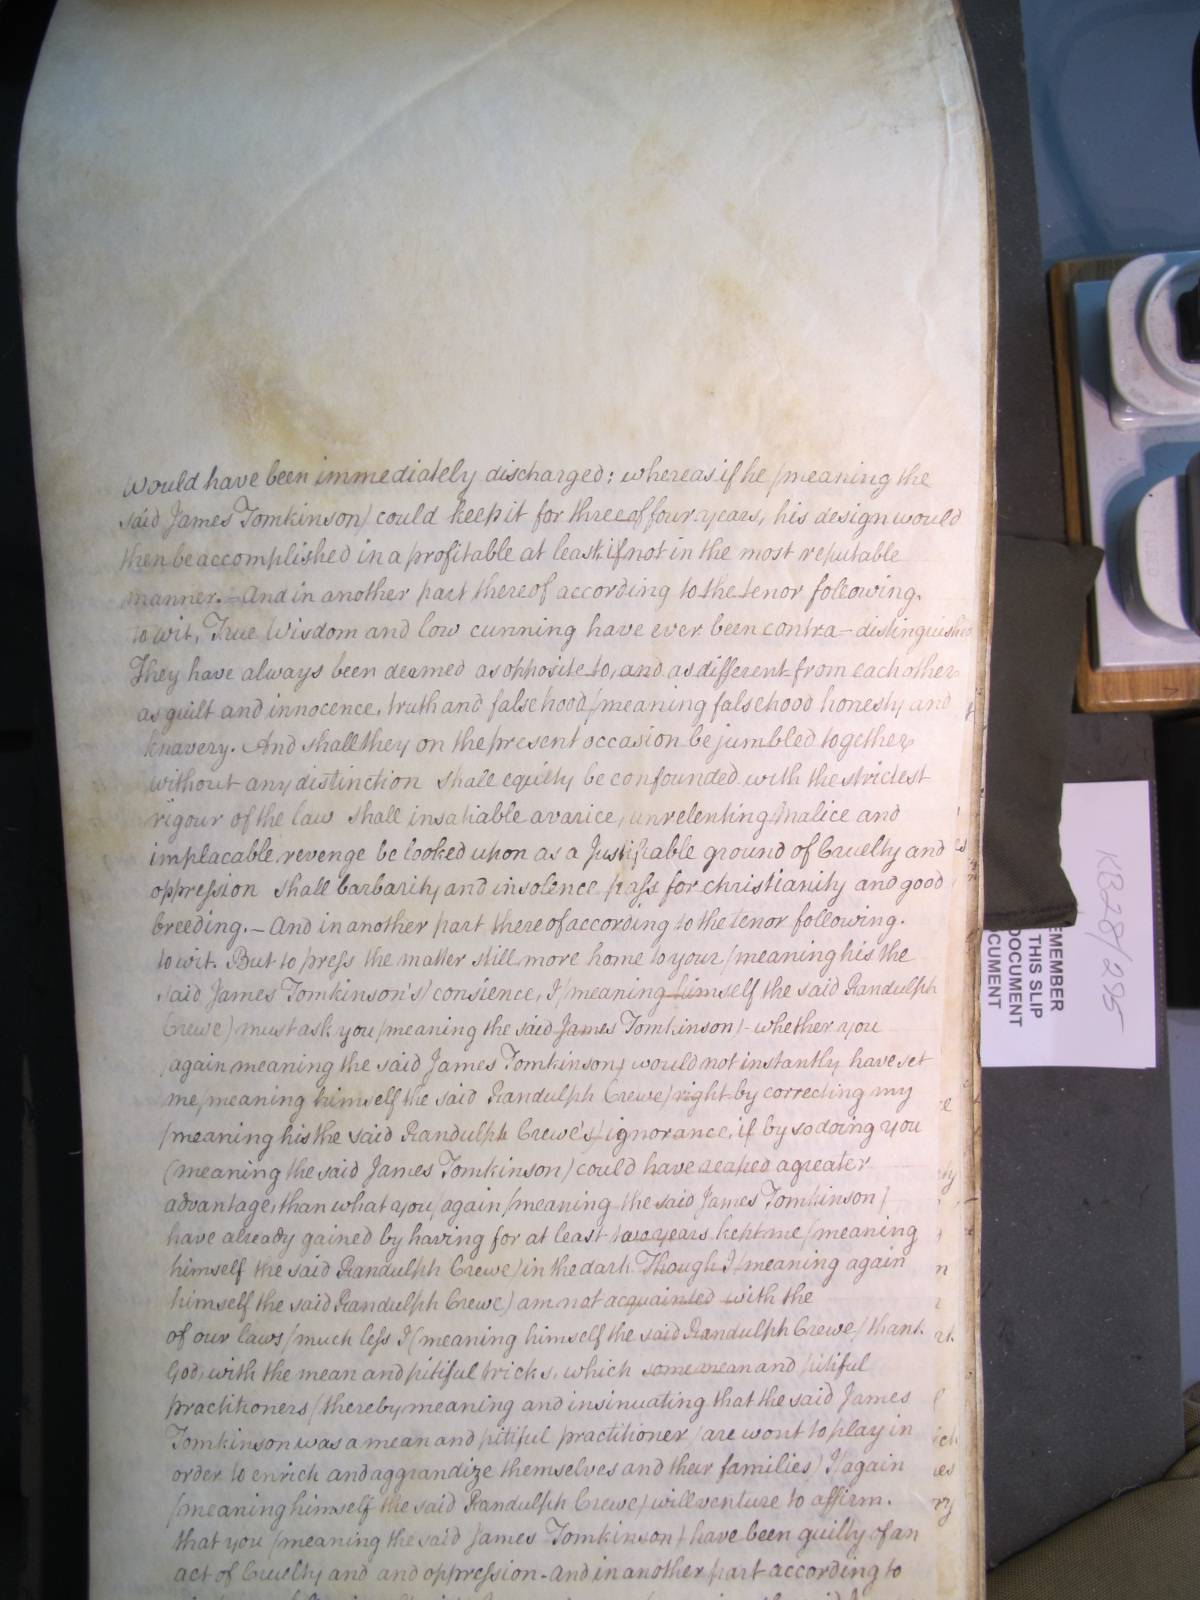 would have been immediately discharged; whereas if he (meaning the
said James Tomkinson) could keep it for three of four years, his design would
then be accomplished in a profitable at least if not in the most reputable
manner. – And in another part thereof according to the tenor following.
to wit, True Wisdom and low cunning have ever been contra – distinguished
They have always been deemed as opposite to, and as different from each other
as guilt and innocence, truth and falsehood (meaning falsehood honesty and
knavery. And shall they on the present occasion be jumbled together
without any distinction shall equity be confounded with the strictest
rigour of the law shall insatiable avarice, unrelenting malice and
implacable revenge be looked upon as a Justifiable ground of Cruelty and
oppression shall barbarity and insolence pass for christianity and good
breeding. – And in another part thereof according to the tenor following.
to wit. But to press the matter still more home to your (meaning his the
said James Tomkinson's) consience, I (meaning himself the said Randulph
Crewe) must ask you (meaning the said James Tomkinson) whether you
again meaning the said James Tomkinson) would not instantly have set
me (meaning himself the said Randulph Crewe) right by correcting my
(meaning his the said Randulph Crewe's) ignorance, if by so doing you
(meaning the said James Tomkinson) could have reaped a greater
advantage, than what you (again (meaning the said James Tomkinson)
have already gained by having for at least two years kept me (meaning
himself the said Randulph Crewe) in the dark. Though I (meaning again
himself the said Randulph Crewe) am not acquainted with the
of our laws (much less I (meaning himself the said Randulph Crewe) thank
God, with the mean and pitiful tricks, which some mean and pitiful
practitioners (thereby meaning and insinuating that the said James
Tomkinson was a mean and pitiful practitioner) are wont to play in
order to enrich and aggrandize themselves and their families) I (again
(meaning himself the said Randulph Crewe) will venture to affirm.
that you (meaning the said James Tomkinson) have been guilty of an
act of Cruelty and and oppression - and in another part according to
KB28/295
EMEMBER
THIS SLIP
DOCUMENT
CUMENT